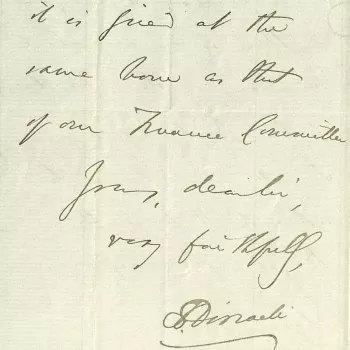 it is fixed at the
same hour as that
of our Finance Committee
Yours, dear Sir,
very faithfully,
B Disraeli